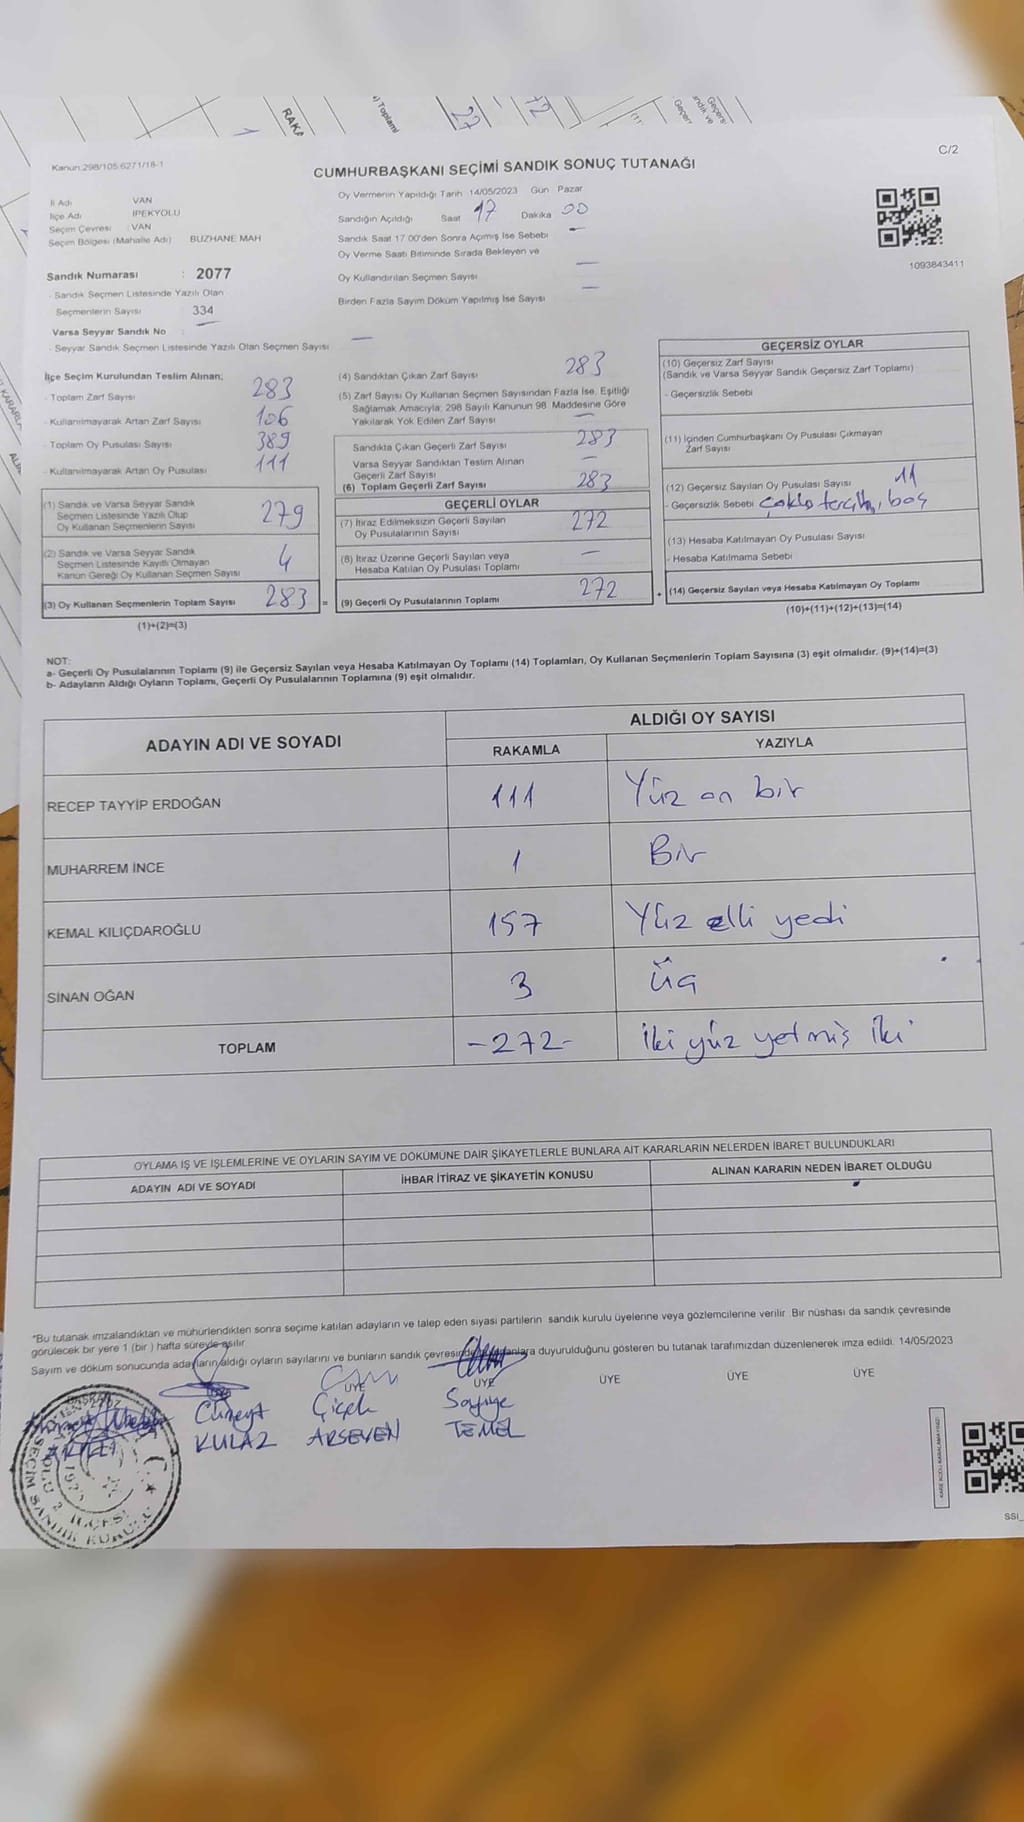 RAKA
) Toplamı
27
72
Kanun:298/105.6271/18-1
C/2
CUMHURBAŞKANI SEÇİMİ SANDIK SONUÇ TUTANAĞI
İl Adı VAN
İlçe Adı İPEKYOLU
Seçim Çevresi : VAN
Seçim Bölgesi (Mahalle Adı) BUZHANE MAH
Sandık Numarası : 2077
- Sandık Seçmen Listesinde Yazılı Olan
Seçmenlerin Sayısı : 334
Varsa Seyyar Sandık No —
- Seyyar Sandık Seçmen Listesinde Yazılı Olan Seçmen Sayısı —
Oy Vermenin Yapıldığı Tarih 14/05/2023 Gün Pazar
Sandığın Açıldığı Saat 17 Dakika 00
Sandık Saat 17.00'den Sonra Açılmış İse Sebebi —
Oy Verme Saati Bitiminde Sırada Bekleyen ve
Oy Kullandırılan Seçmen Sayısı —
Birden Fazla Sayım Döküm Yapılmış İse Sayısı —
1093843411
İlçe Seçim Kurulundan Teslim Alınan;
- Toplam Zarf Sayısı 283
- Kullanılmayarak Artan Zarf Sayısı 106
- Toplam Oy Pusulası Sayısı 389
- Kullanılmayarak Artan Oy Pusulası 111
(1) Sandık ve Varsa Seyyar Sandık
Seçmen Listesinde Yazılı Olup
Oy Kullanan Seçmenlerin Sayısı 279
(2) Sandık ve Varsa Seyyar Sandık
Seçmen Listesinde Kayıtlı Olmayan
Kanun Gereği Oy Kullanan Seçmen Sayısı 4
(3) Oy Kullanan Seçmenlerin Toplam Sayısı 283 =
(1)+(2)=(3)
(4) Sandıktan Çıkan Zarf Sayısı 283
(5) Zarf Sayısı Oy Kullanan Seçmen Sayısından Fazla İse, Eşitliği
Sağlamak Amacıyla; 298 Sayılı Kanunun 98. Maddesine Göre
Yakılarak Yok Edilen Zarf Sayısı —
Sandıkta Çıkan Geçerli Zarf Sayısı 283
Varsa Seyyar Sandıktan Teslim Alınan
Geçerli Zarf Sayısı —
(6) Toplam Geçerli Zarf Sayısı 283
GEÇERLİ OYLAR
(7) İtiraz Edilmeksizin Geçerli Sayılan
Oy Pusulalarının Sayısı 272
(8) İtiraz Üzerine Geçerli Sayılan veya
Hesaba Katılan Oy Pusulası Toplamı —
(9) Geçerli Oy Pusulalarının Toplamı 272 +
GEÇERSİZ OYLAR
(10) Geçersiz Zarf Sayısı
(Sandık ve Varsa Seyyar Sandık Geçersiz Zarf Toplamı)
- Geçersizlik Sebebi
(11) İçinden Cumhurbaşkanı Oy Pusulası Çıkmayan
Zarf Sayısı
(12) Geçersiz Sayılan Oy Pusulası Sayısı 11
- Geçersizlik Sebebi boş
(13) Hesaba Katılmayan Oy Pusulası Sayısı
- Hesaba Katılmama Sebebi
(14) Geçersiz Sayılan veya Hesaba Katılmayan Oy Toplamı
(10)+(11)+(12)+(13)=(14)
NOT:
a- Geçerli Oy Pusulalarının Toplamı (9) ile Geçersiz Sayılan veya Hesaba Katılmayan Oy Toplamı (14) Toplamları, Oy Kullanan Seçmenlerin Toplam Sayısına (3) eşit olmalıdır. (9)+(14)=(3)
b- Adayların Aldığı Oyların Toplamı, Geçerli Oy Pusulalarının Toplamına (9) eşit olmalıdır.
ADAYIN ADI VE SOYADI
ALDIĞI OY SAYISI
RAKAMLA YAZIYLA
RECEP TAYYİP ERDOĞAN 111 Yüz on bir
MUHARREM İNCE 1 Bir
KEMAL KILIÇDAROĞLU 157 Yüz elli yedi
SİNAN OĞAN 3 üç
TOPLAM -272- iki yüz yetmiş iki
OYLAMA İŞ VE İŞLEMLERİNE VE OYLARIN SAYIM VE DÖKÜMÜNE DAİR ŞİKAYETLERLE BUNLARA AİT KARARLARIN NELERDEN İBARET BULUNDUKLARI
ADAYIN ADI VE SOYADI İHBAR İTİRAZ VE ŞİKAYETİN KONUSU ALINAN KARARIN NEDEN İBARET OLDUĞU
*Bu tutanak imzalandıktan ve mühürlendikten sonra seçime katılan adayların ve talep eden siyasi partilerin sandık kurulu üyelerine veya gözlemcilerine verilir. Bir nüshası da sandık çevresinde
görülecek bir yere 1 (bir ) hafta süreyle asılır.
Sayım ve döküm sonucunda adayların aldığı oyların sayılarını ve bunların sandık çevresinde duyurulduğunu gösteren bu tutanak tarafımızdan düzenlenerek imza edildi. 14/05/2023
BAŞKAN ÜYE ÜYE ÜYE ÜYE ÜYE
Cüneyt Çiçek Safiye
KULAZ ARSEVEN TEMEL
2. İLÇESİ
SEÇİM SANDIK KURULU
SSİ_